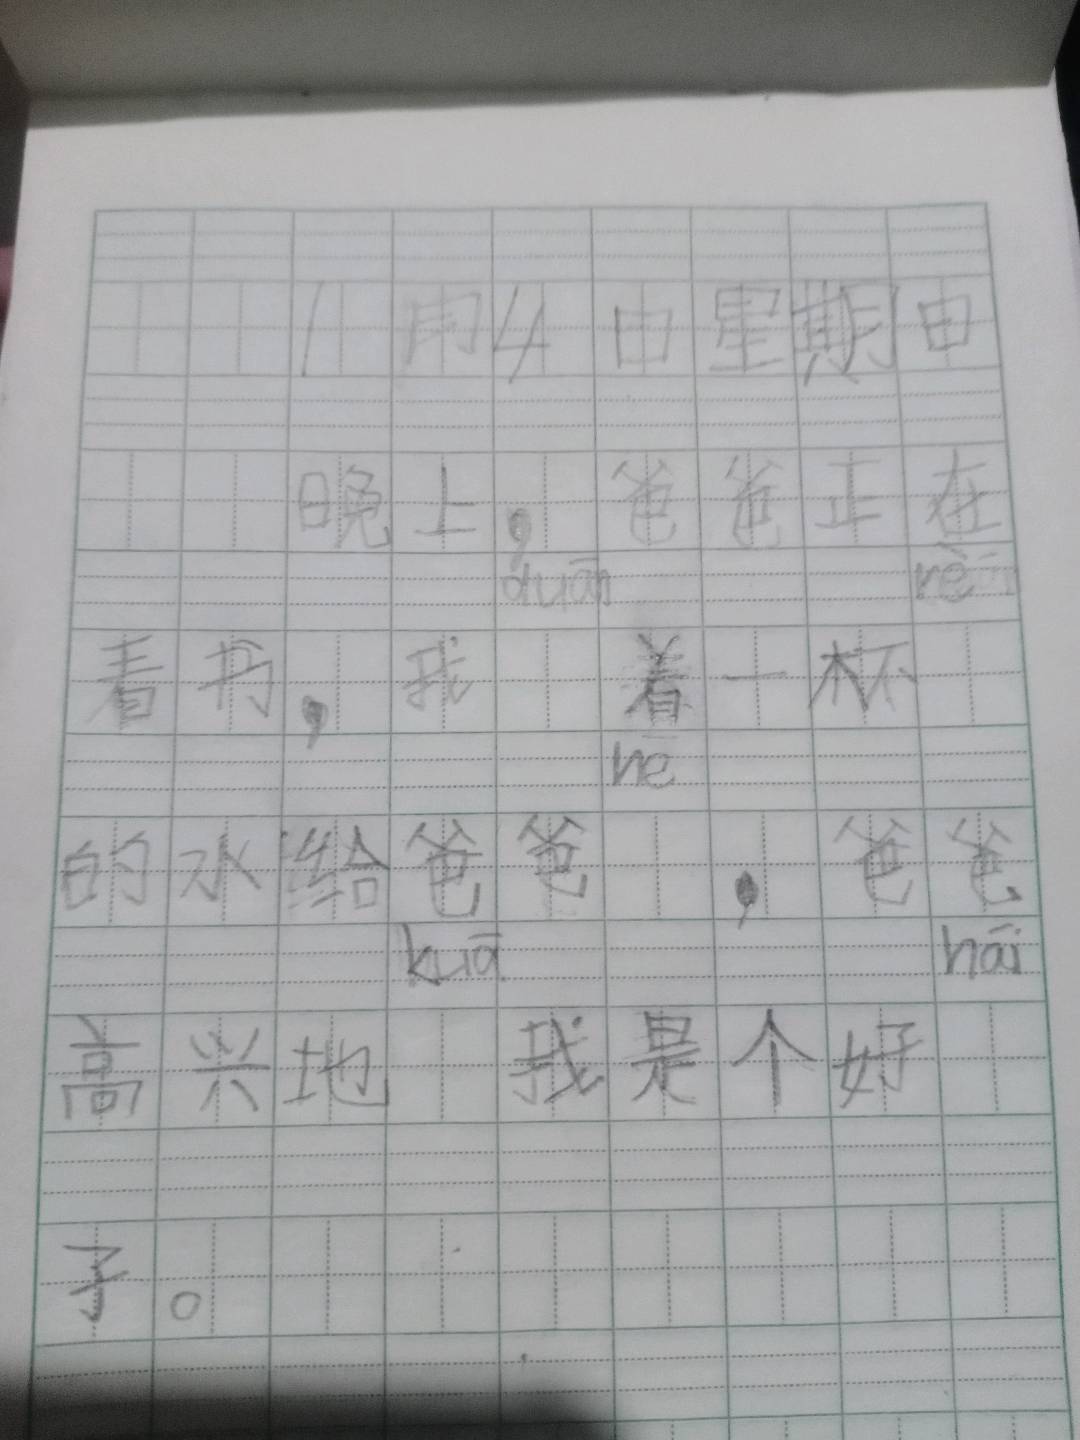 1月4日星期日
晚上，爸爸正在
duān rè
看书，我 着一杯
hē
的水给爸爸 ，爸爸
kuā hái
高兴地 我是个好
子。